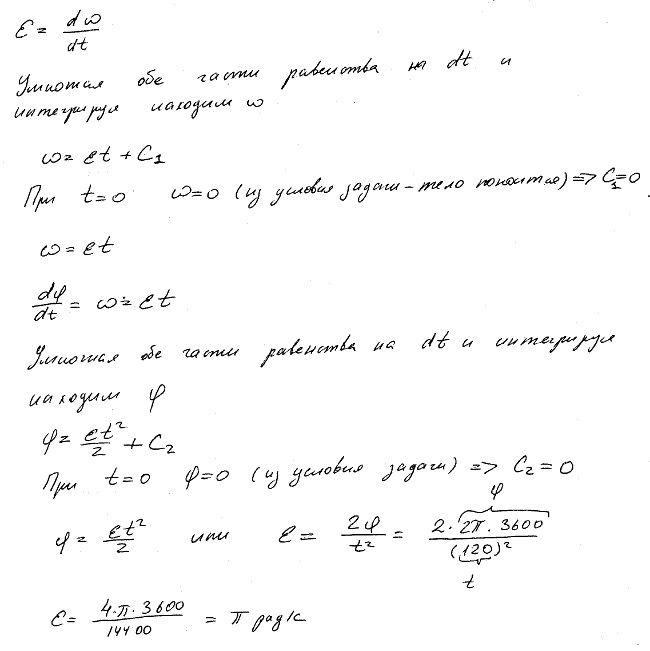 ε = dω/dt
Умножая обе части равенства на dt и
интегрируя находим ω
ω = εt + C₁
При t=0 ω=0 (из условия задачи – тело покоится) => C₁=0
ω = εt
dφ/dt = ω = εt
Умножая обе части равенства на dt и интегрируя
находим φ
φ = εt²/2 + C₂
При t=0 φ=0 (из условия задачи) => C₂=0
φ = εt²/2 или ε = 2φ/t² = 2·2π·3600/(120)²
φ
t
ε = 4·π·3600/14400 = π рад/с